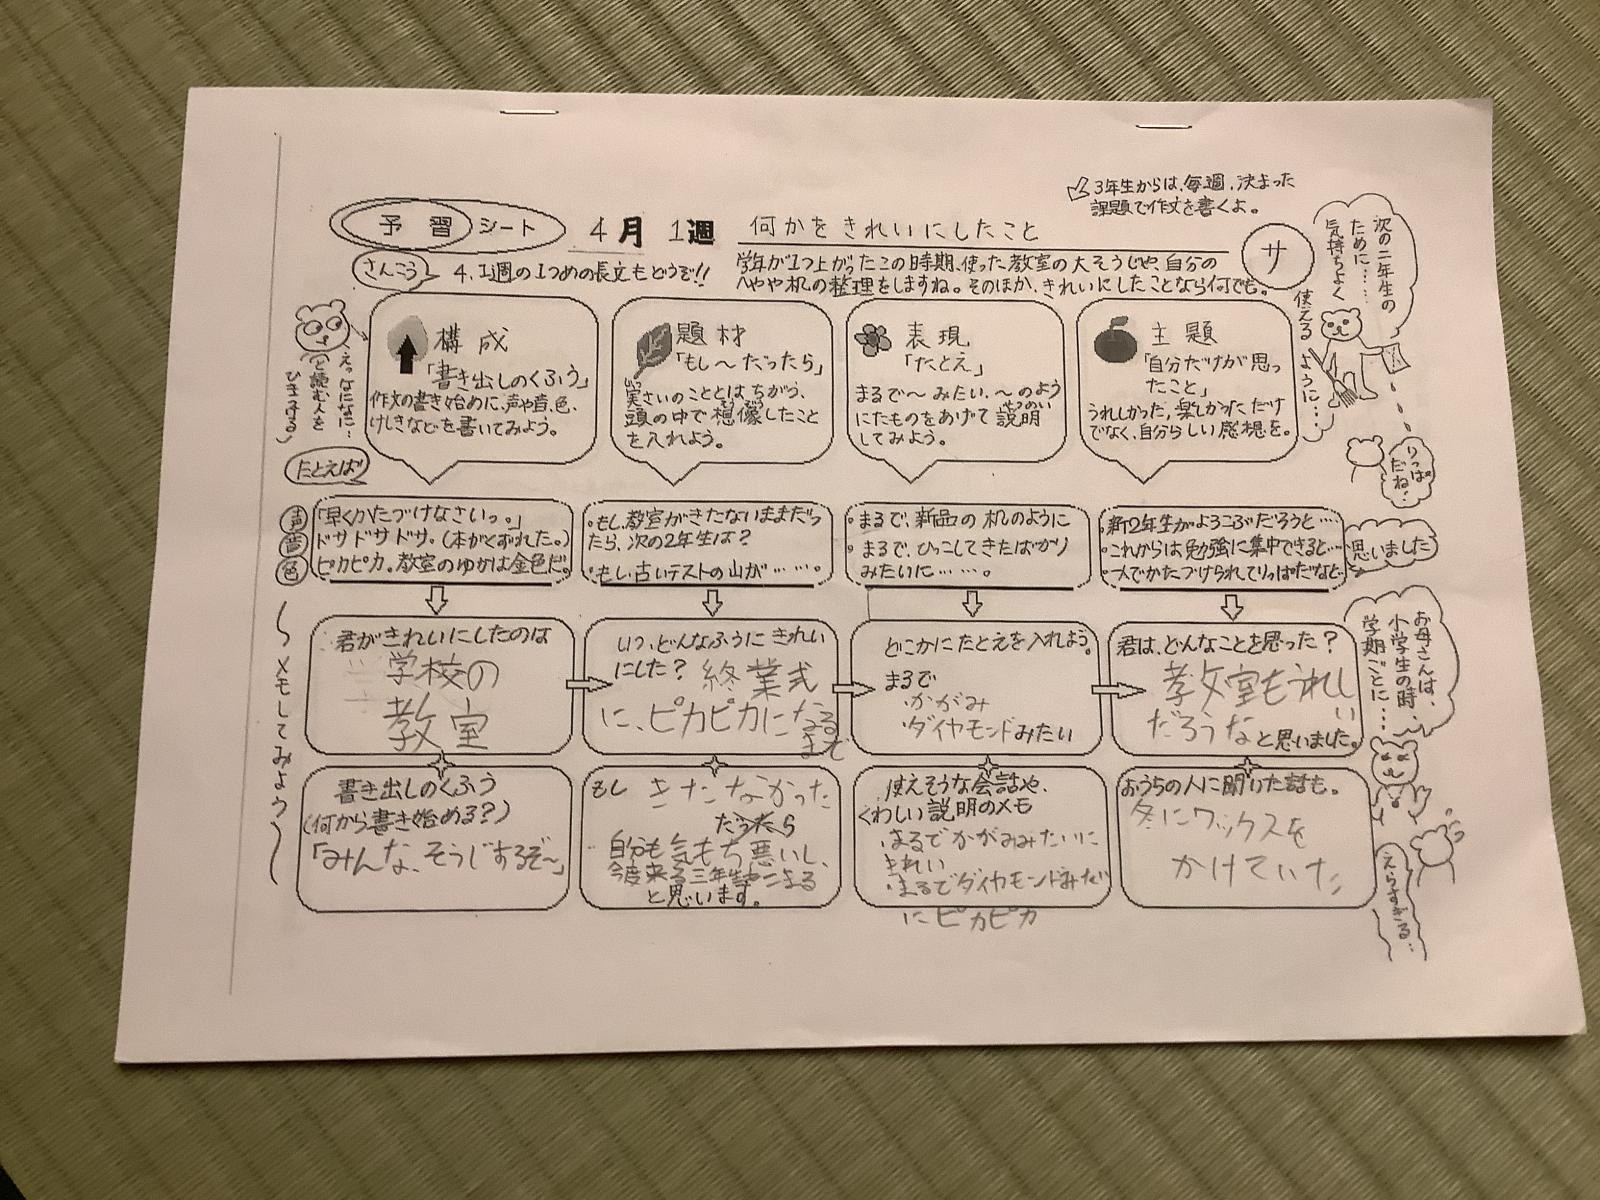 3年生からは、毎週、決まった
課題で作文を書くよ。
予習シート 4月 1週 何かをきれいにしたこと
サ
さんこう 4.1週の1つめの長文もどうぞ!!
学年が1つ上がったこの時期、使った教室の大そうじや、自分の
へやや机の整理をしますね。そのほか、きれいにしたことなら何でも。
次の二年生の
ために……
気持ちよく
使える
ように…
りっぱ
だね!
えっなになに…
と読む人を
ひきつける
構成
「書き出しのくふう」
作文の書き始めに、声や音、色、
けしきなどを書いてみよう。
題材
「もし〜だったら」
実さいのこととはちがう、
頭の中で想像したこと
を入れよう。
表現
「たとえ」
まるで〜みたい、〜のよう
にたものをあげて説明
してみよう。
主題
「自分だけが思っ
たこと」
うれしかった,楽しかっただけ
でなく、自分らしい感想を。
たとえば
声
音
色
「早くかたづけなさいっ。」
ドサドサドサ。(本がくずれた。)
ピカピカ。教室のゆかは金色だ。
・もし、教室がきたないままだっ
たら、次の2年生は?
・もし、古いテストの山が……。
・まるで、新品の机のように
・まるで、ひっこしてきたばかり
みたいに……。
・新2年生がよろこぶだろうと…
・これからは勉強に集中できると…
・一人でかたづけられてりっぱだなと…
思いました
〜メモしてみよう〜
君がきれいにしたのは
学校の
教室
いつ、どんなふうにきれい
にした? 終業式
に、ピカピカになる
まで
どこかにたとえを入れよう。
まるで
・かがみ
・ダイヤモンドみたい
君は、どんなことを思った?
教室もうれし
い
だろうなと思いました。
お母さんは、
小学生の時、
学期ごとに…
書き出しのくふう
(何から書き始める?)
「みんな、そうじするぞ〜」
もし きたなかった
だったら
自分も気もち悪いし、
今度来る三年生もこまる
と思います。
使えそうな会話や、
くわしい説明のメモ
・まるでかがみみたいに
きれい
・まるでダイヤモンドみたい
にピカピカ
おうちの人に聞いた話も。
冬にワックスを
かけていた
えらすぎる…